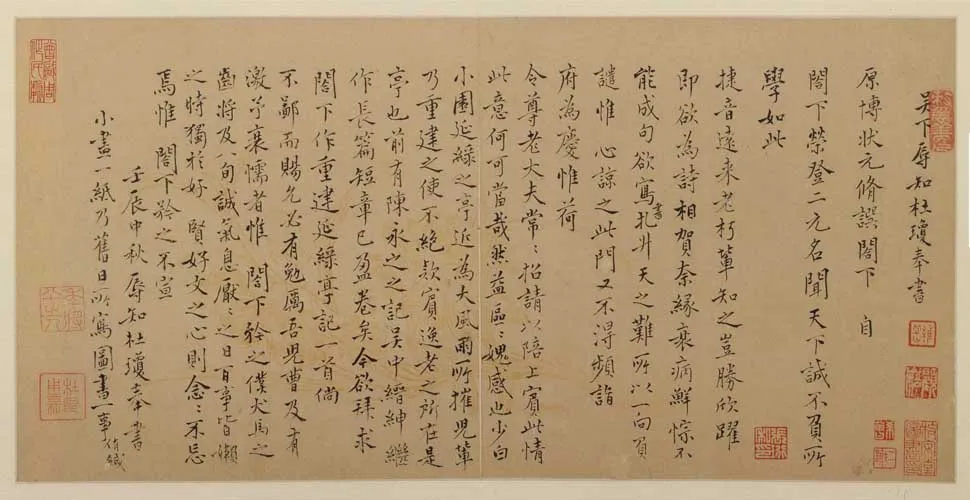 吴下辱知杜瓊奉書
原博狀元脩譔閣下 自
閣下榮登二元名聞天下誠不負所
學如此
捷音遠來老朽輩知之豈勝欣躍
即欲為詩相賀奈緣衰病鮮悰不
能成句欲寫書札升天之難所以一向負
譴惟 心諒之此門又不得頻詣
府為慶惟荷
令尊老大夫常〻招請以陪上賓此情
此意何可當哉然益區〻媿感也少白
小園延綠之亭近為大風雨所摧兒輩
乃重建之使不絕款賓逸老之所在是
亭也前有陳永之之記吴中縉紳繼
作長篇短章已盈卷矣今欲拜求
閣下作重建延綠亭記一首倘
不鄙而賜允必有勉厲吾兒曹及有
激乎衰懦者惟 閣下於之僕犬馬之
齒將及八旬誠氣息厭〻之日百事皆懶
之時獨於好 賢好文之心則念〻不忘
焉惟 閣下矜之不宣
壬辰中秋 辱知杜瓊奉 書
小畫一紙乃舊日所寫圖書一事